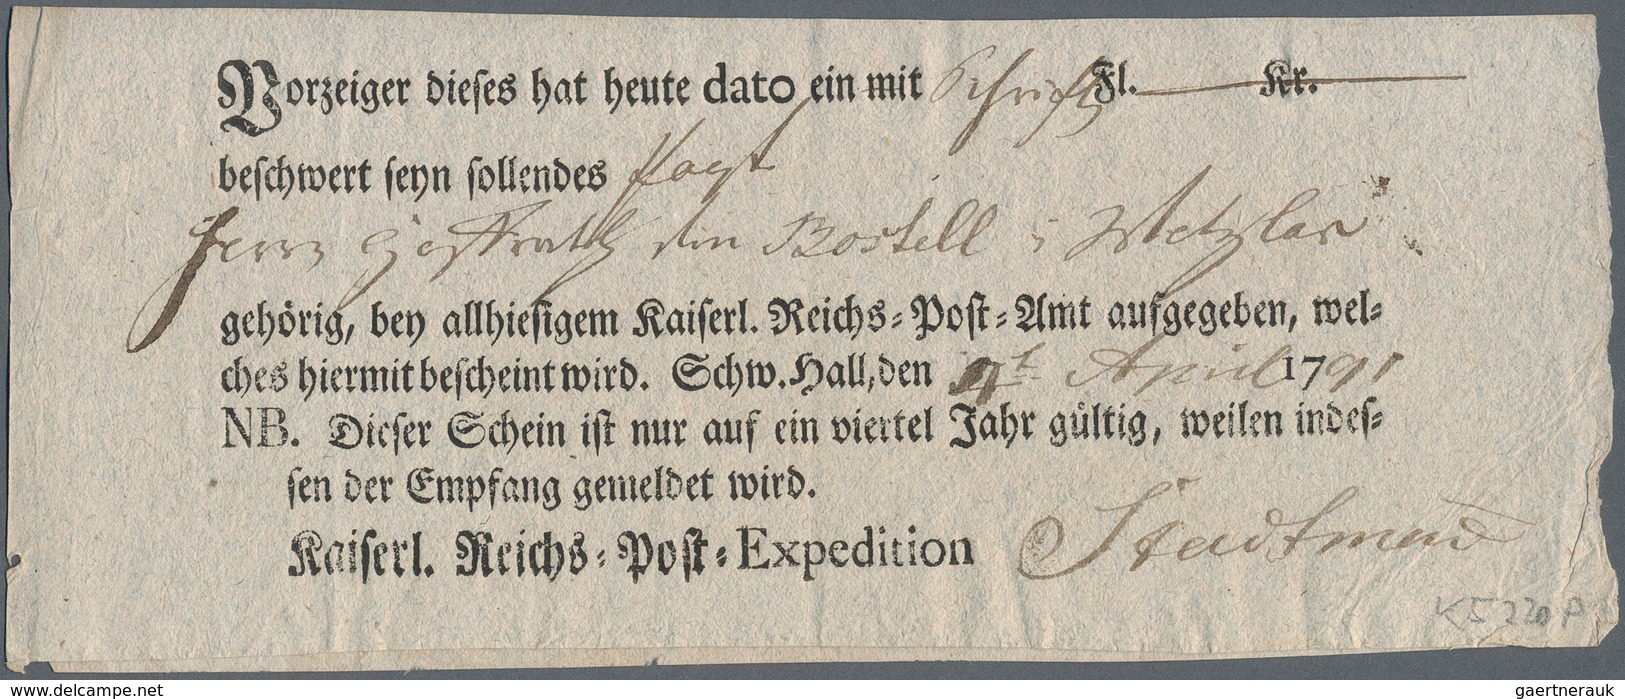 Vorzeiger dieſes hat heute dato ein mit Schrift Fl. Kr.
beſchwert ſeyn ſollendes
Herrn Hoffrath von Bostell in Wetzlar
gehörig, bey allhieſigem Kaiſerl. Reichs-Poſt-Amt aufgegeben, wel-
ches hiermit beſcheint wird. Schw. Hall, den April 1791
NB. Dieſer Schein iſt nur auf ein viertel Jahr gültig, weilen indeſ-
ſen der Empfang gemeldet wird.
Kaiſerl. Reichs-Poſt-Expedition
www.delcampe.net
gaertnerauk